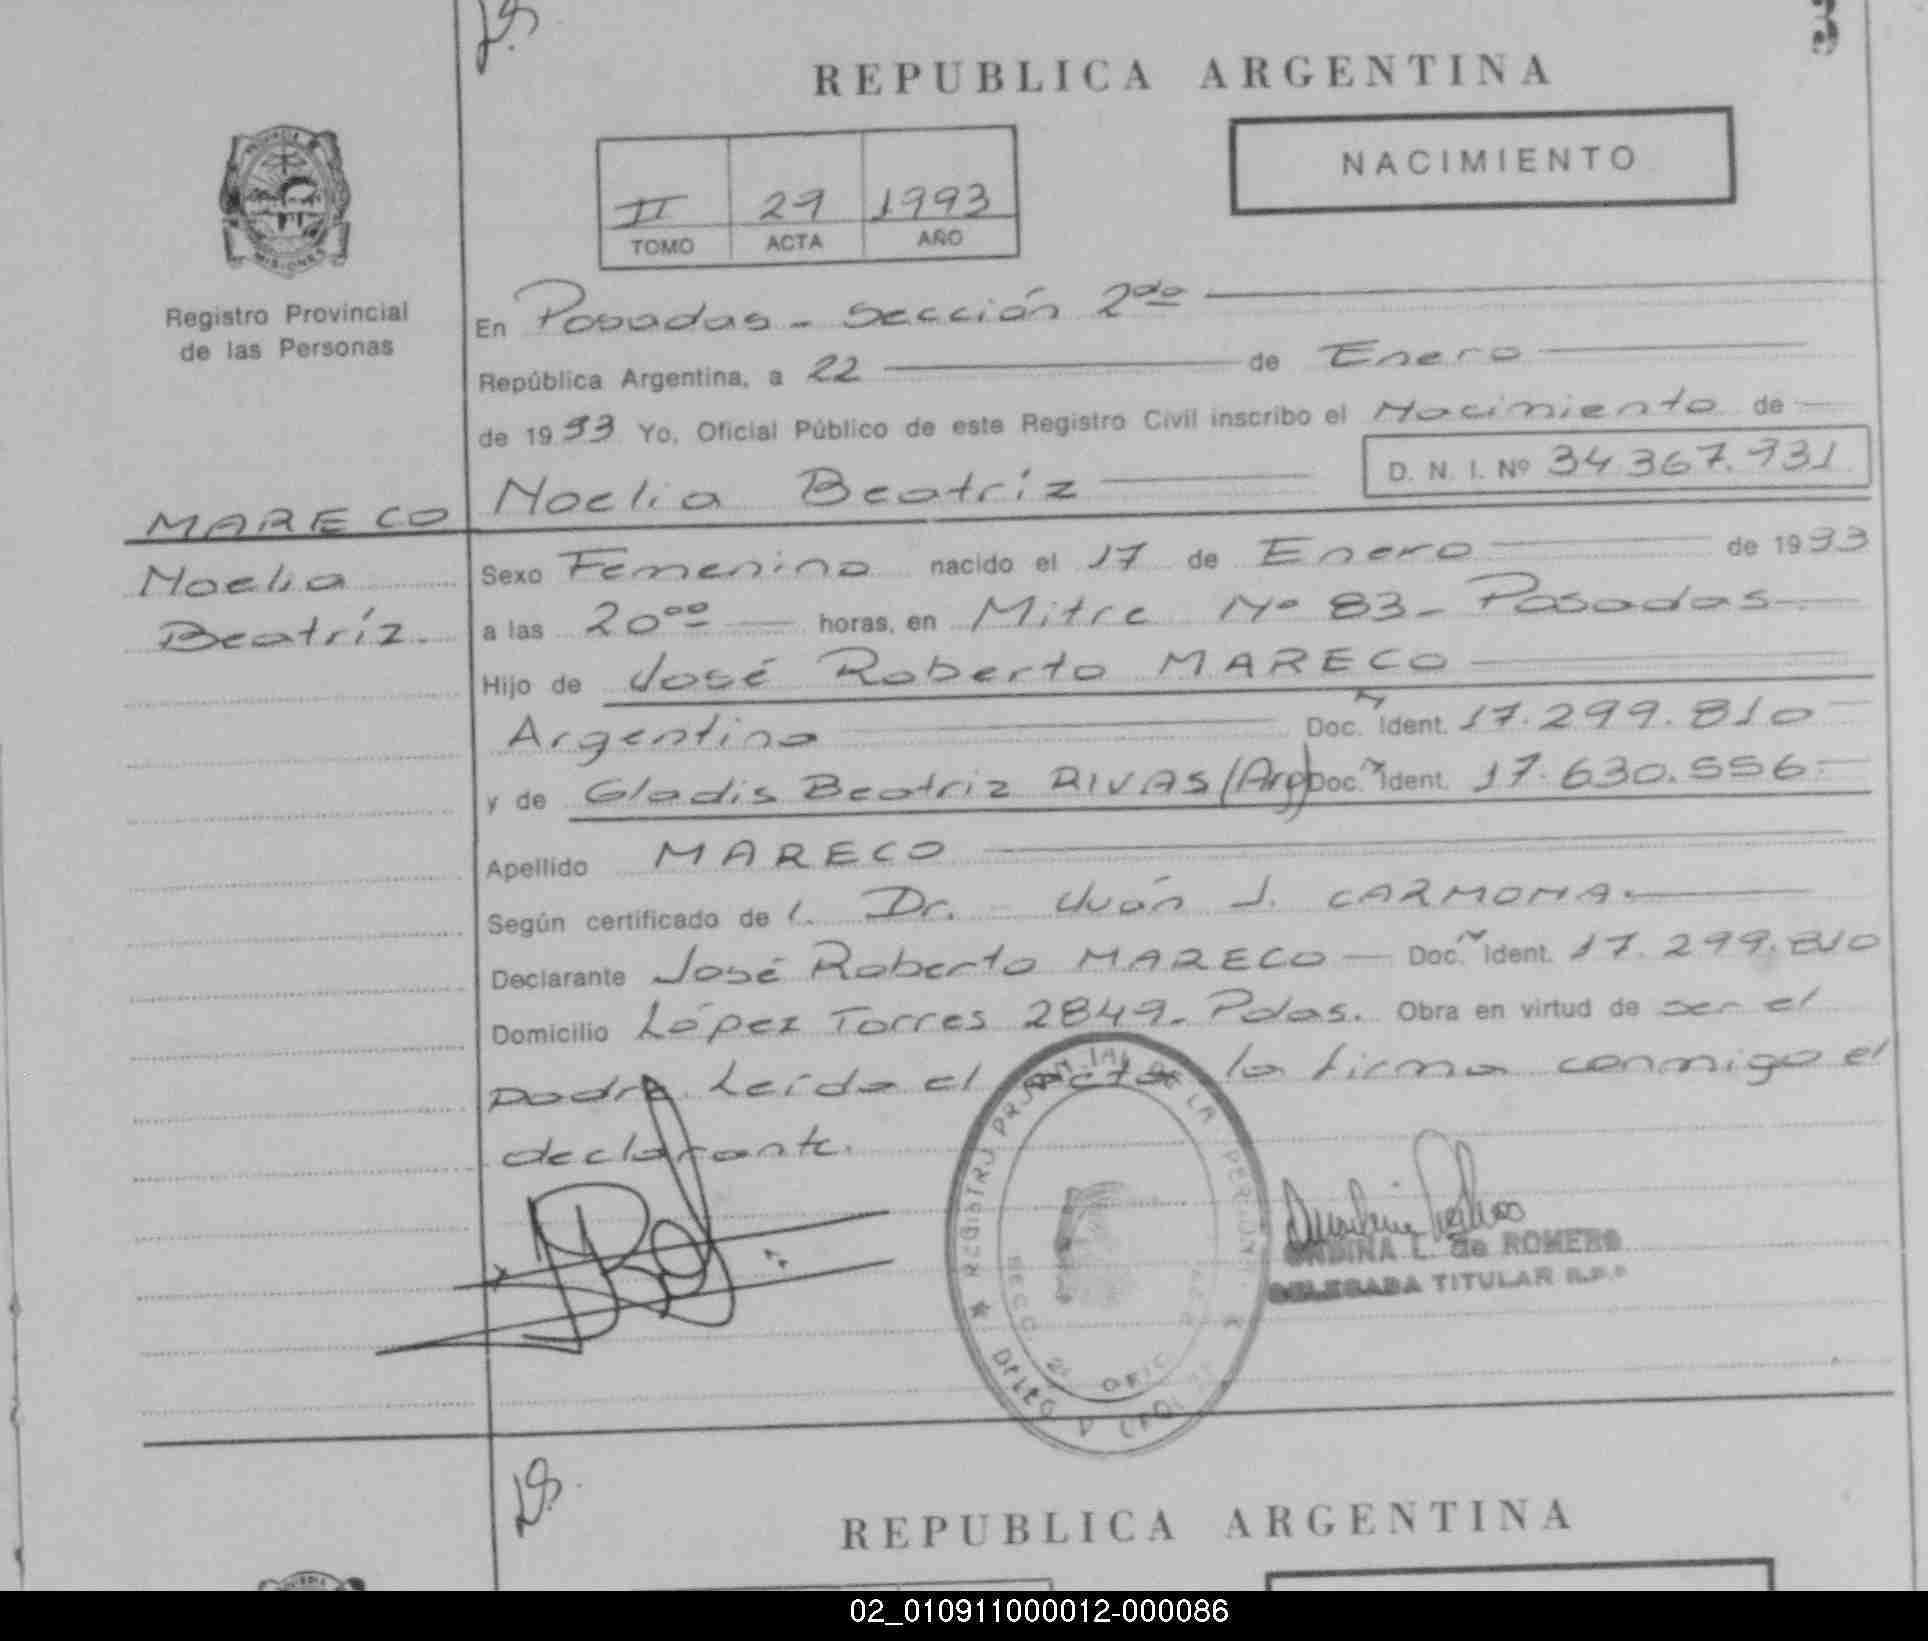 REPUBLICA ARGENTINA
NACIMIENTO
II 29 1993
TOMO ACTA AÑO
PROVINCIA DE
MISIONES
Registro Provincial
de las Personas
En Posadas - Sección 2da
República Argentina, a 22 de Enero
de 1993 Yo, Oficial Público de este Registro Civil inscribo el Nacimiento de
Noelia Beatríz D. N. I. Nº 34.367.931
MARECO
Noelia
Beatríz.
Sexo Femenino nacido el 17 de Enero de 1993
a las 20oo horas, en Mitre Nº 83 - Posadas
Hijo de José Roberto MARECO
Argentino Doc. Ident. 17.299.810
y de Gladis Beatriz RIVAS (Arg) Doc. Ident. 17.630.556
Apellido MARECO
Según certificado de l. Dr. Juán J. CARMONA.
Declarante José Roberto MARECO Doc. Ident. 17.299.810
Domicilio López Torres 2849. Pdas. Obra en virtud de ser el
padre. Leída el acta la firma conmigo el
declarante.
REGISTRO PROVINCIAL DE LAS PERSONAS
SECC. 2a
ONDINA L. de ROMERO
DELEGADA TITULAR R.P.P.
REPUBLICA ARGENTINA
02_010911000012-000086